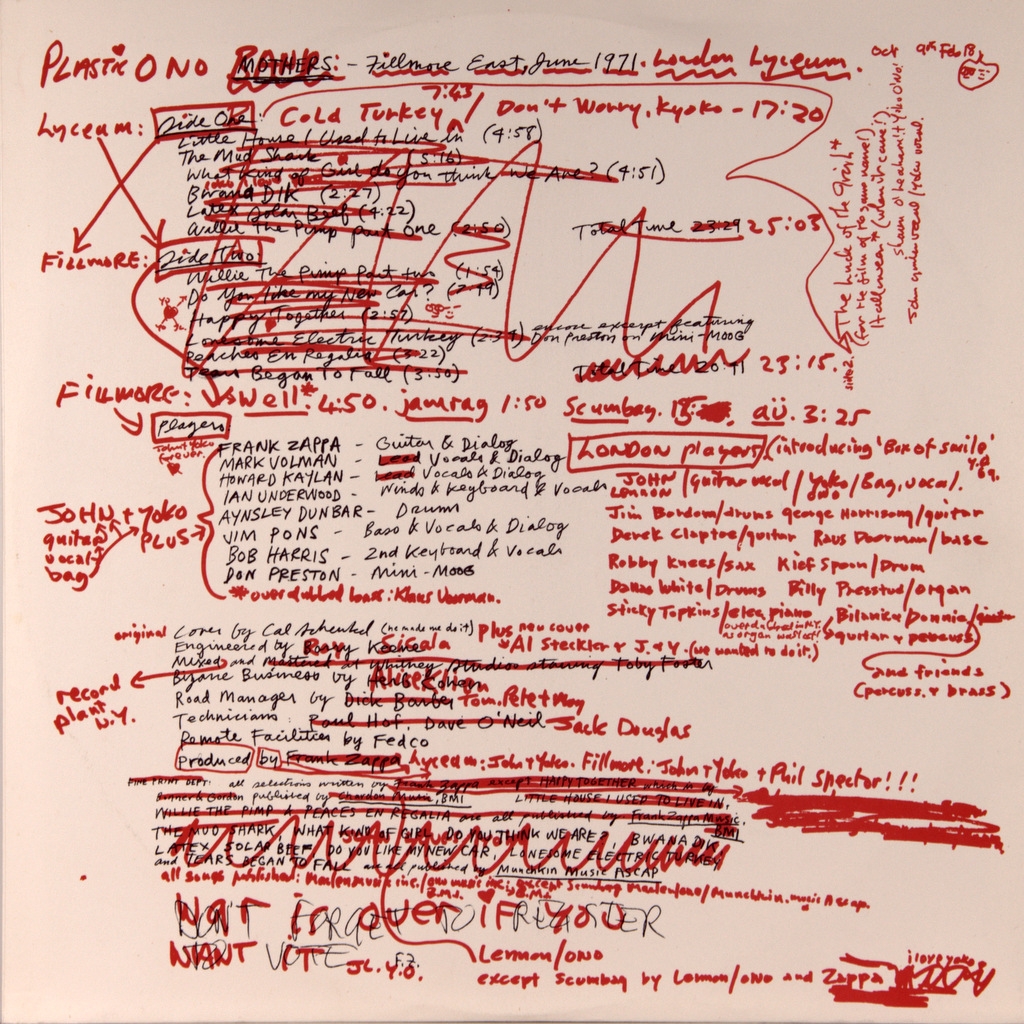 PLASTIC ONO BAND: MOTHERS: - Fillmore East, June 1971. London Lyceum.
Oct 9th Feb 18
Lyceum: Side One: Cold Turkey 7:43 / Don't Worry, Kyoko - 17:20
Little House I Used to Live in (4:58)
The Mud Shark (5:16)
What Kind of Girl do you think we Are? (4:51)
Bwana Dik (2:27)
Latex Solar Beef (4:22)
Willie The Pimp part One (2:50) Total Time 23:29 25:03
FILLMORE: Side Two:
Willie The Pimp Part two (1:54)
Do You like my New Car?
Happy Together (2:57)
Lonesome Electric Turkey encore excerpt featuring Don Preston on Mini-MOOG
Peaches En Regalia (3:22)
Tears Began To Fall (3:50) Total Time 20:41 23:15.
side 2.
FILLMORE: Well* 4:50. jamrag 1:50 Scumbag. aü. 3:25
Players:
FRANK ZAPPA - Guitar & Dialog
MARK VOLMAN - Lead Vocals & Dialog
HOWARD KAYLAN - Lead Vocals & Dialog
IAN UNDERWOOD - Winds & Keyboard & Vocals
AYNSLEY DUNBAR - Drums
JIM PONS - Bass & Vocals & Dialog
BOB HARRIS - 2nd Keyboard & Vocals
DON PRESTON - Mini-MOOG
*overdubbed bass: Klaus Voorman.
JOHN + YOKO PLUS
guitar vocal bag
LONDON players (introducing 'Box of smile'
JOHN LENNON/guitar vocal/Yoko ONO/Bag, vocal.
Jim Bordom/drums george Harrisong/guitar
Derek Claptoe/guitar Raus Doorman/base
Robby Knees/sax Kief Spoon/Drum
Dallas White/Drums Billy Presstud/organ
Sticky Topkins/elec piano
and friends
(percuss. & brass)
original Cover by Cal Schenkel (he made me do it) plus new cover Al Steckler + J. & Y. (we wanted to do it.)
Engineered by Barry Keene Roy Cicala
Mixed and Mastered at Whitney Studios starring Toby Foster
record plant N.Y.
Bizarre Business by Herb Cohen
Road Manager by Dick Barber
Technicians: Paul Hof, Dave O'Neil Jack Douglas
Remote Facilities by Fedco
Produced by Frank Zappa Lyceum: John + Yoko. Fillmore: John + Yoko + Phil Spector!!!
FINE PRINT DEPT: all selections written by Frank Zappa except HAPPY TOGETHER which is by
Bonner & Gordon published by Chardon Music, BMI LITTLE HOUSE I USED TO LIVE IN,
WILLIE THE PIMP & PEACES EN REGALIA are all published by Frank Zappa Music, BMI
THE MUD SHARK, WHAT KIND OF GIRL DO YOU THINK WE ARE?, BWANA DIK
LATEX SOLAR BEEF, DO YOU LIKE MY NEW CAR, LONESOME ELECTRIC TURKEY
and TEARS BEGAN TO FALL are all published by Munchkin Music ASCAP
DON'T FORGET TO REGISTER
TO VOTE F.Z.
WAR IS over IF YOU
WANT IT J.L. Y.O.
Lennon/ONO
except Scumbag by Lennon/ONO and Zappa
i love yoko